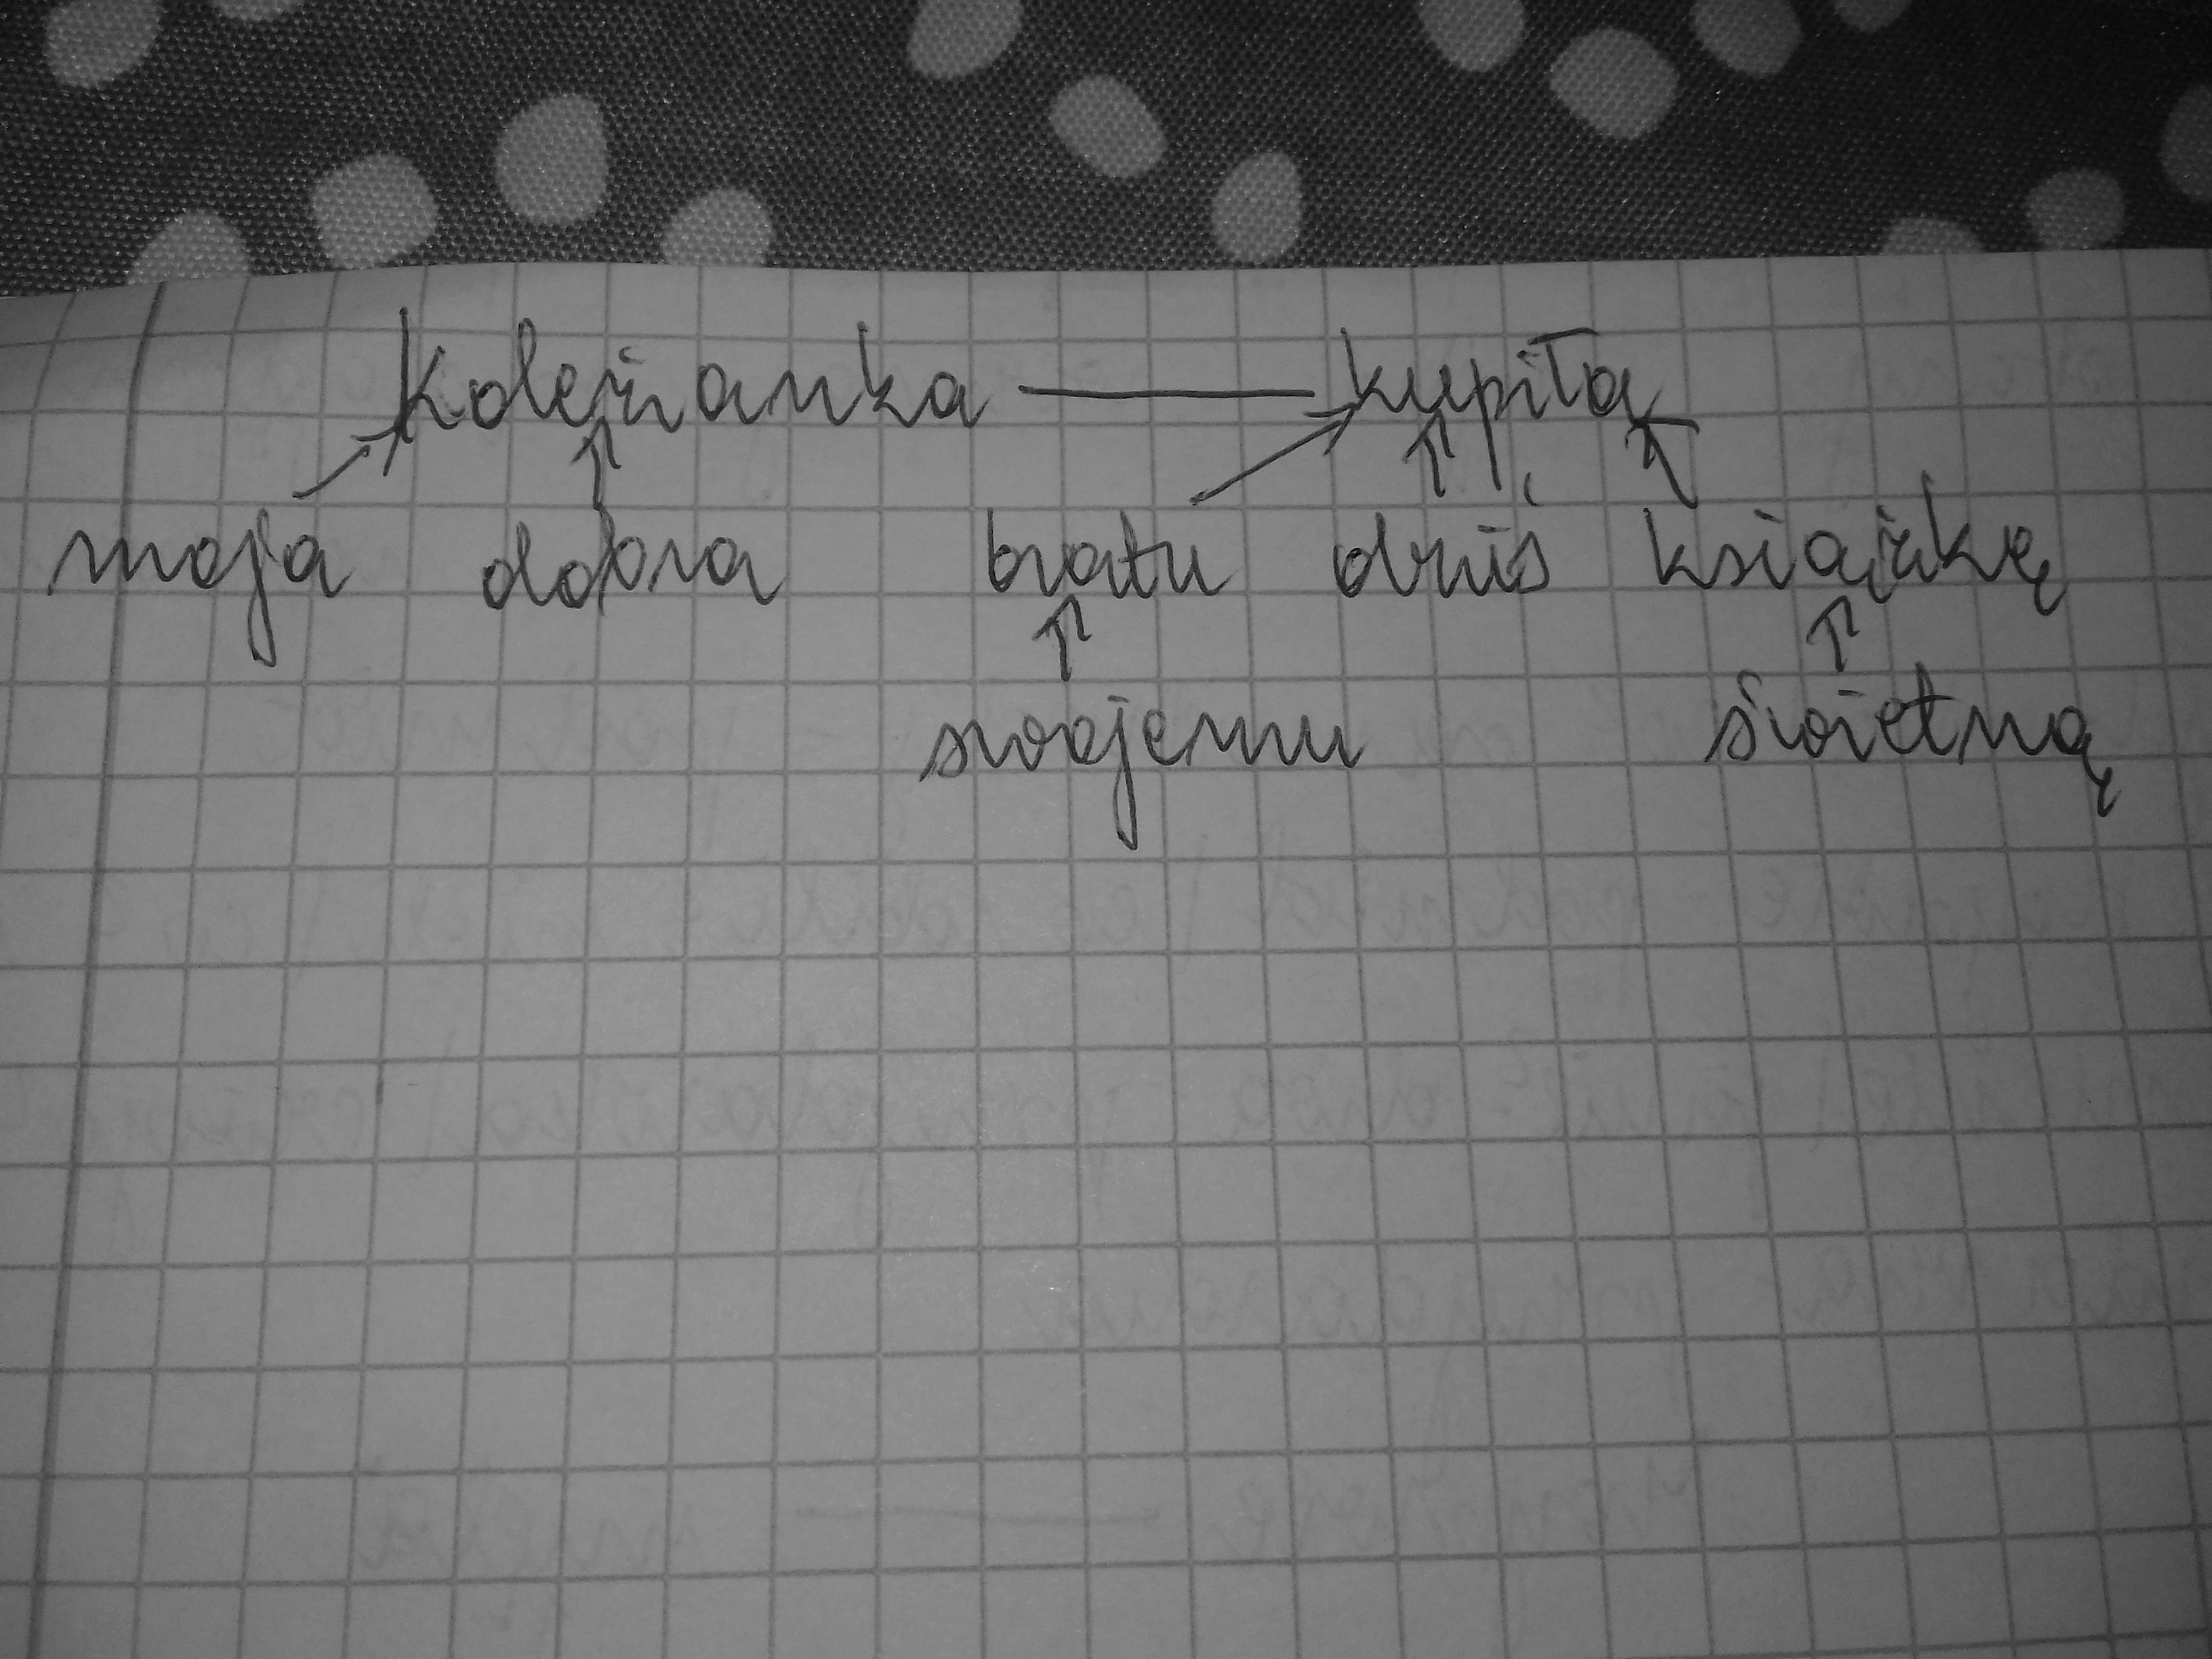 Koleżanka kupiła
moja dobra bratu dziś książkę
swojemu świetną